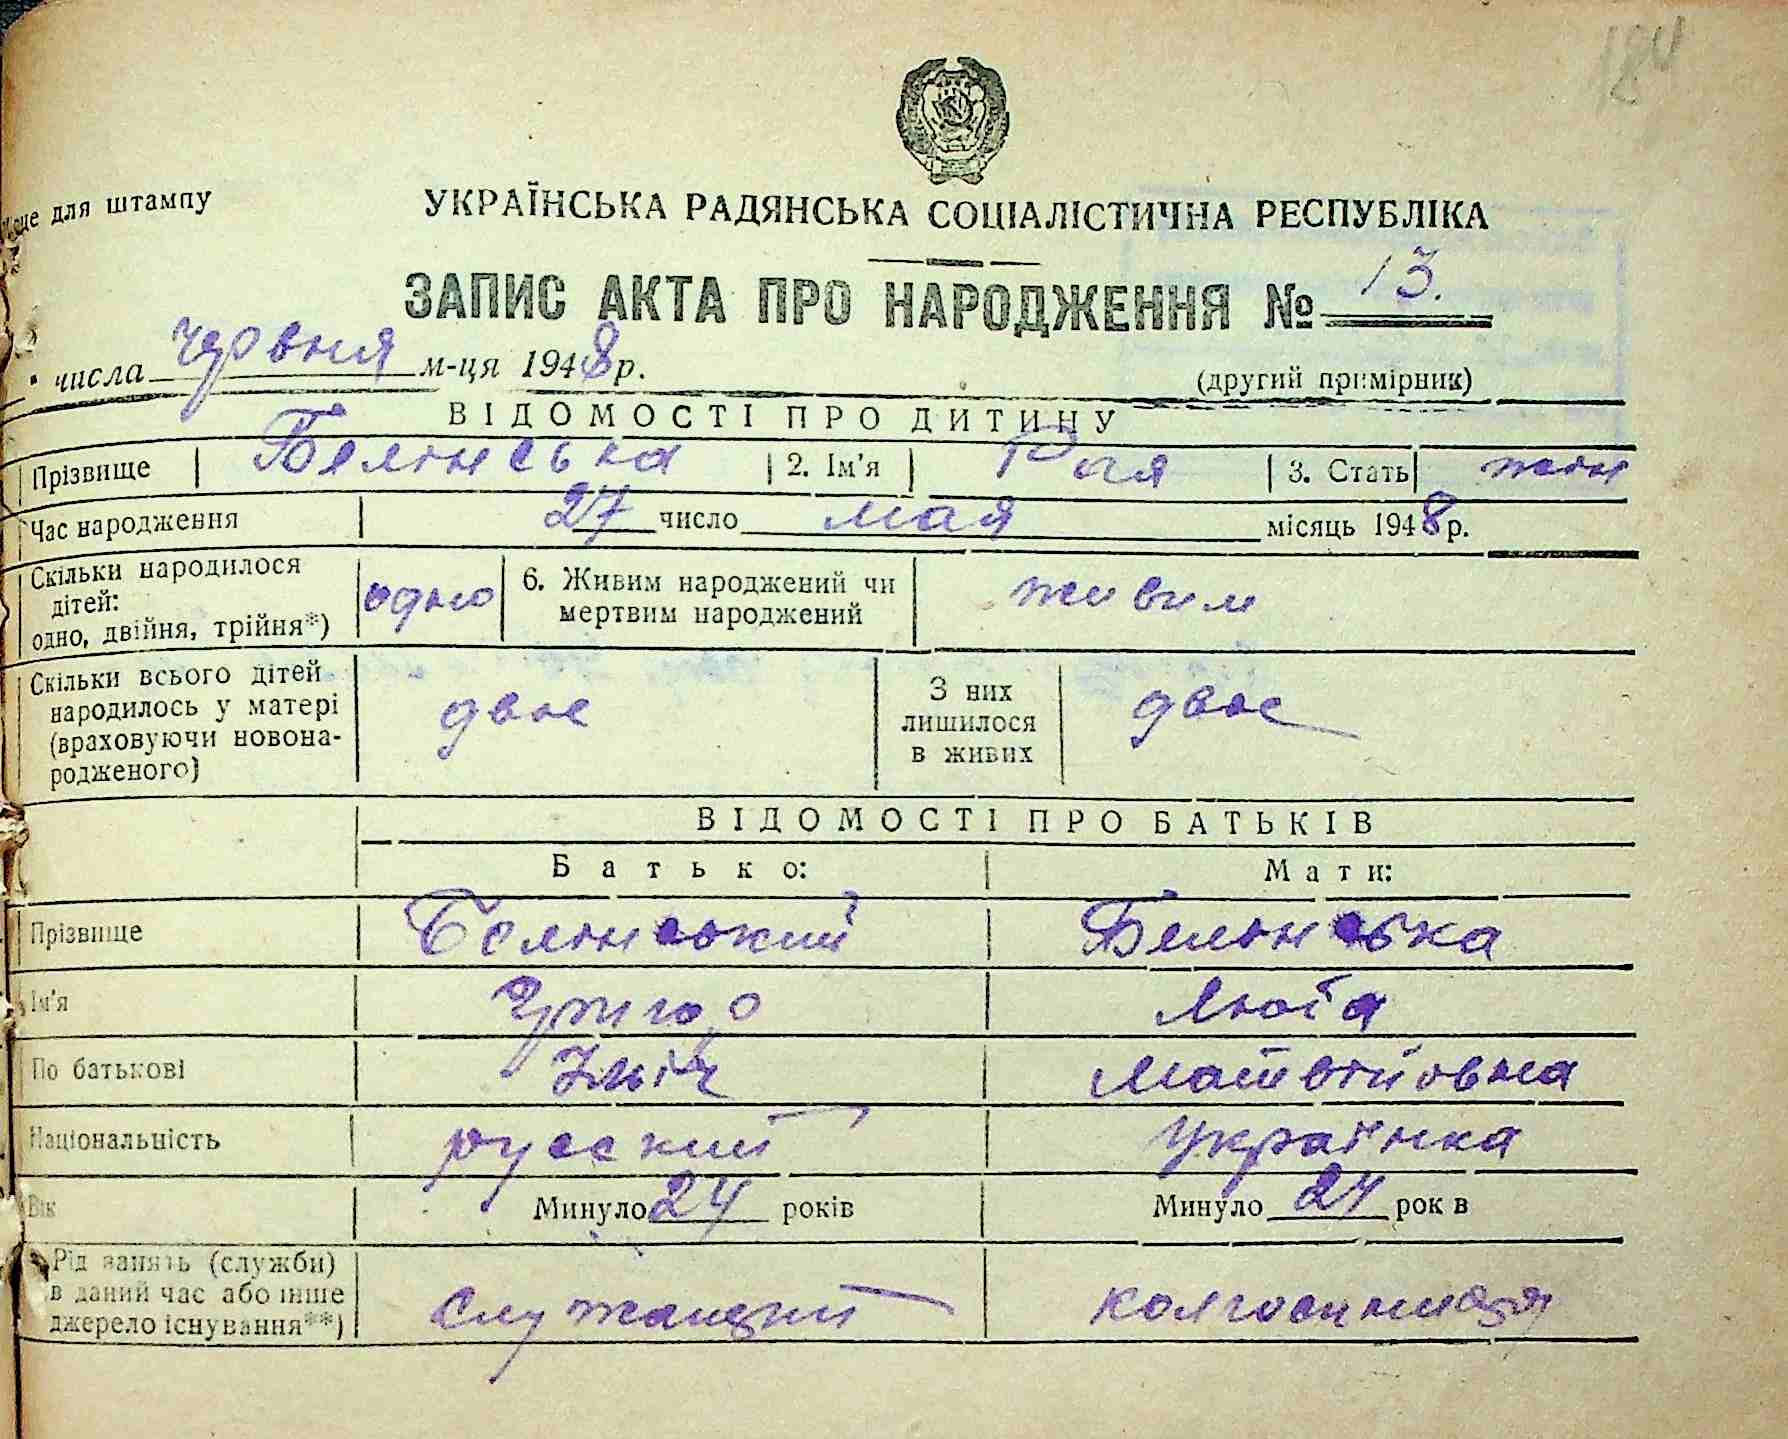 184
місце для штампу
УКРАЇНСЬКА РАДЯНСЬКА СОЦІАЛІСТИЧНА РЕСПУБЛІКА
ЗАПИС АКТА ПРО НАРОДЖЕННЯ № 13.
числа червня м-ця 1948 р.
(другий примірник)
ВІДОМОСТІ ПРО ДИТИНУ
Прізвище Белінська 2. Ім'я Рая 3. Стать жін
Час народження 27 число мая місяць 1948 р.
Скільки народилося дітей: одно, двійня, трійня*) одно 6. Живим народжений чи мертвим народжений живим
Скільки всього дітей народилось у матері (враховуючи новонародженого) двоє З них лишилося в живих двоє
ВІДОМОСТІ ПРО БАТЬКІВ
Батько: Мати:
Прізвище Белінський Белінська
Ім'я Люба
По батькові Ільіч Матвійовна
Національність русский українка
Вік Минуло 24 років Минуло 24 рок в
Рід занять (служби) в даний час або інше джерело існування**) служащий колгоспниця